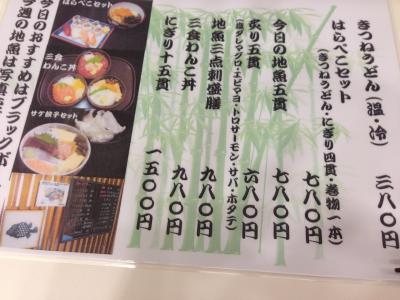 きつねうどん（温・冷） 三八〇円
はらぺこセット 七八〇円
（きつねうどん・にぎり四貫・巻物一本）
今日の地魚五貫 七八〇円
炙り五貫 六八〇円
（塩タレマグロ・エビマヨ・トロサーモン・サバ・ホタテ）
地魚三点刺盛膳 九八〇円
三食わんこ丼 九八〇円
にぎり十五貫 一五〇〇円
はらぺこセット
三食
わんこ丼
サケ親子セット
今日のおすすめはブラックボー
今週の地魚は写真